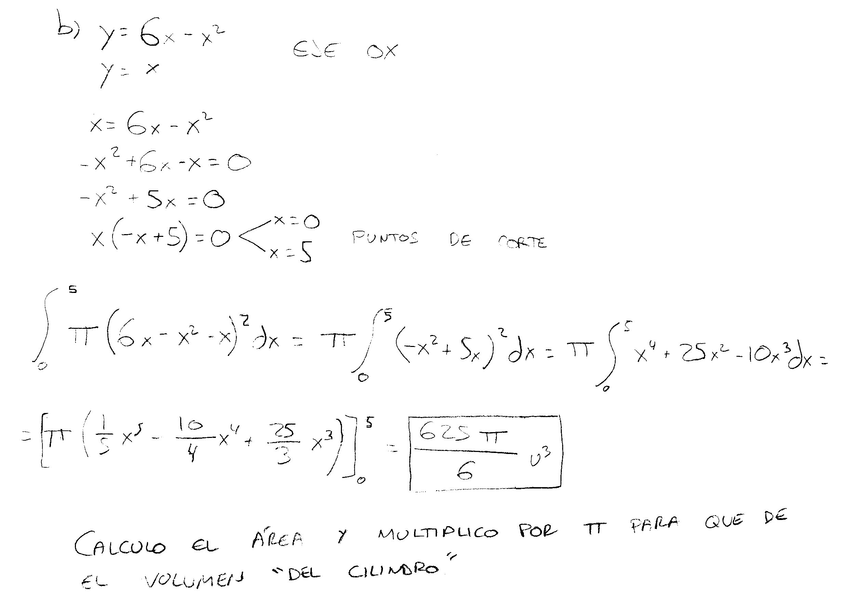 b) y = 6x - x² EJE OX
y = x
x = 6x - x²
-x² + 6x - x = 0
-x² + 5x = 0
x(-x + 5) = 0 < x = 0 x = 5 PUNTOS DE CORTE
∫₀⁵ π(6x - x² - x)² dx = π ∫₀⁵ (-x² + 5x)² dx = π ∫₀⁵ x⁴ + 25x² - 10x³ dx =
= [π (1/5 x⁵ - 10/4 x⁴ + 25/3 x³)]₀⁵ = 625 π / 6 u³
CALCULO EL ÁREA Y MULTIPLICO POR π PARA QUE DE
EL VOLUMEN "DEL CILINDRO"